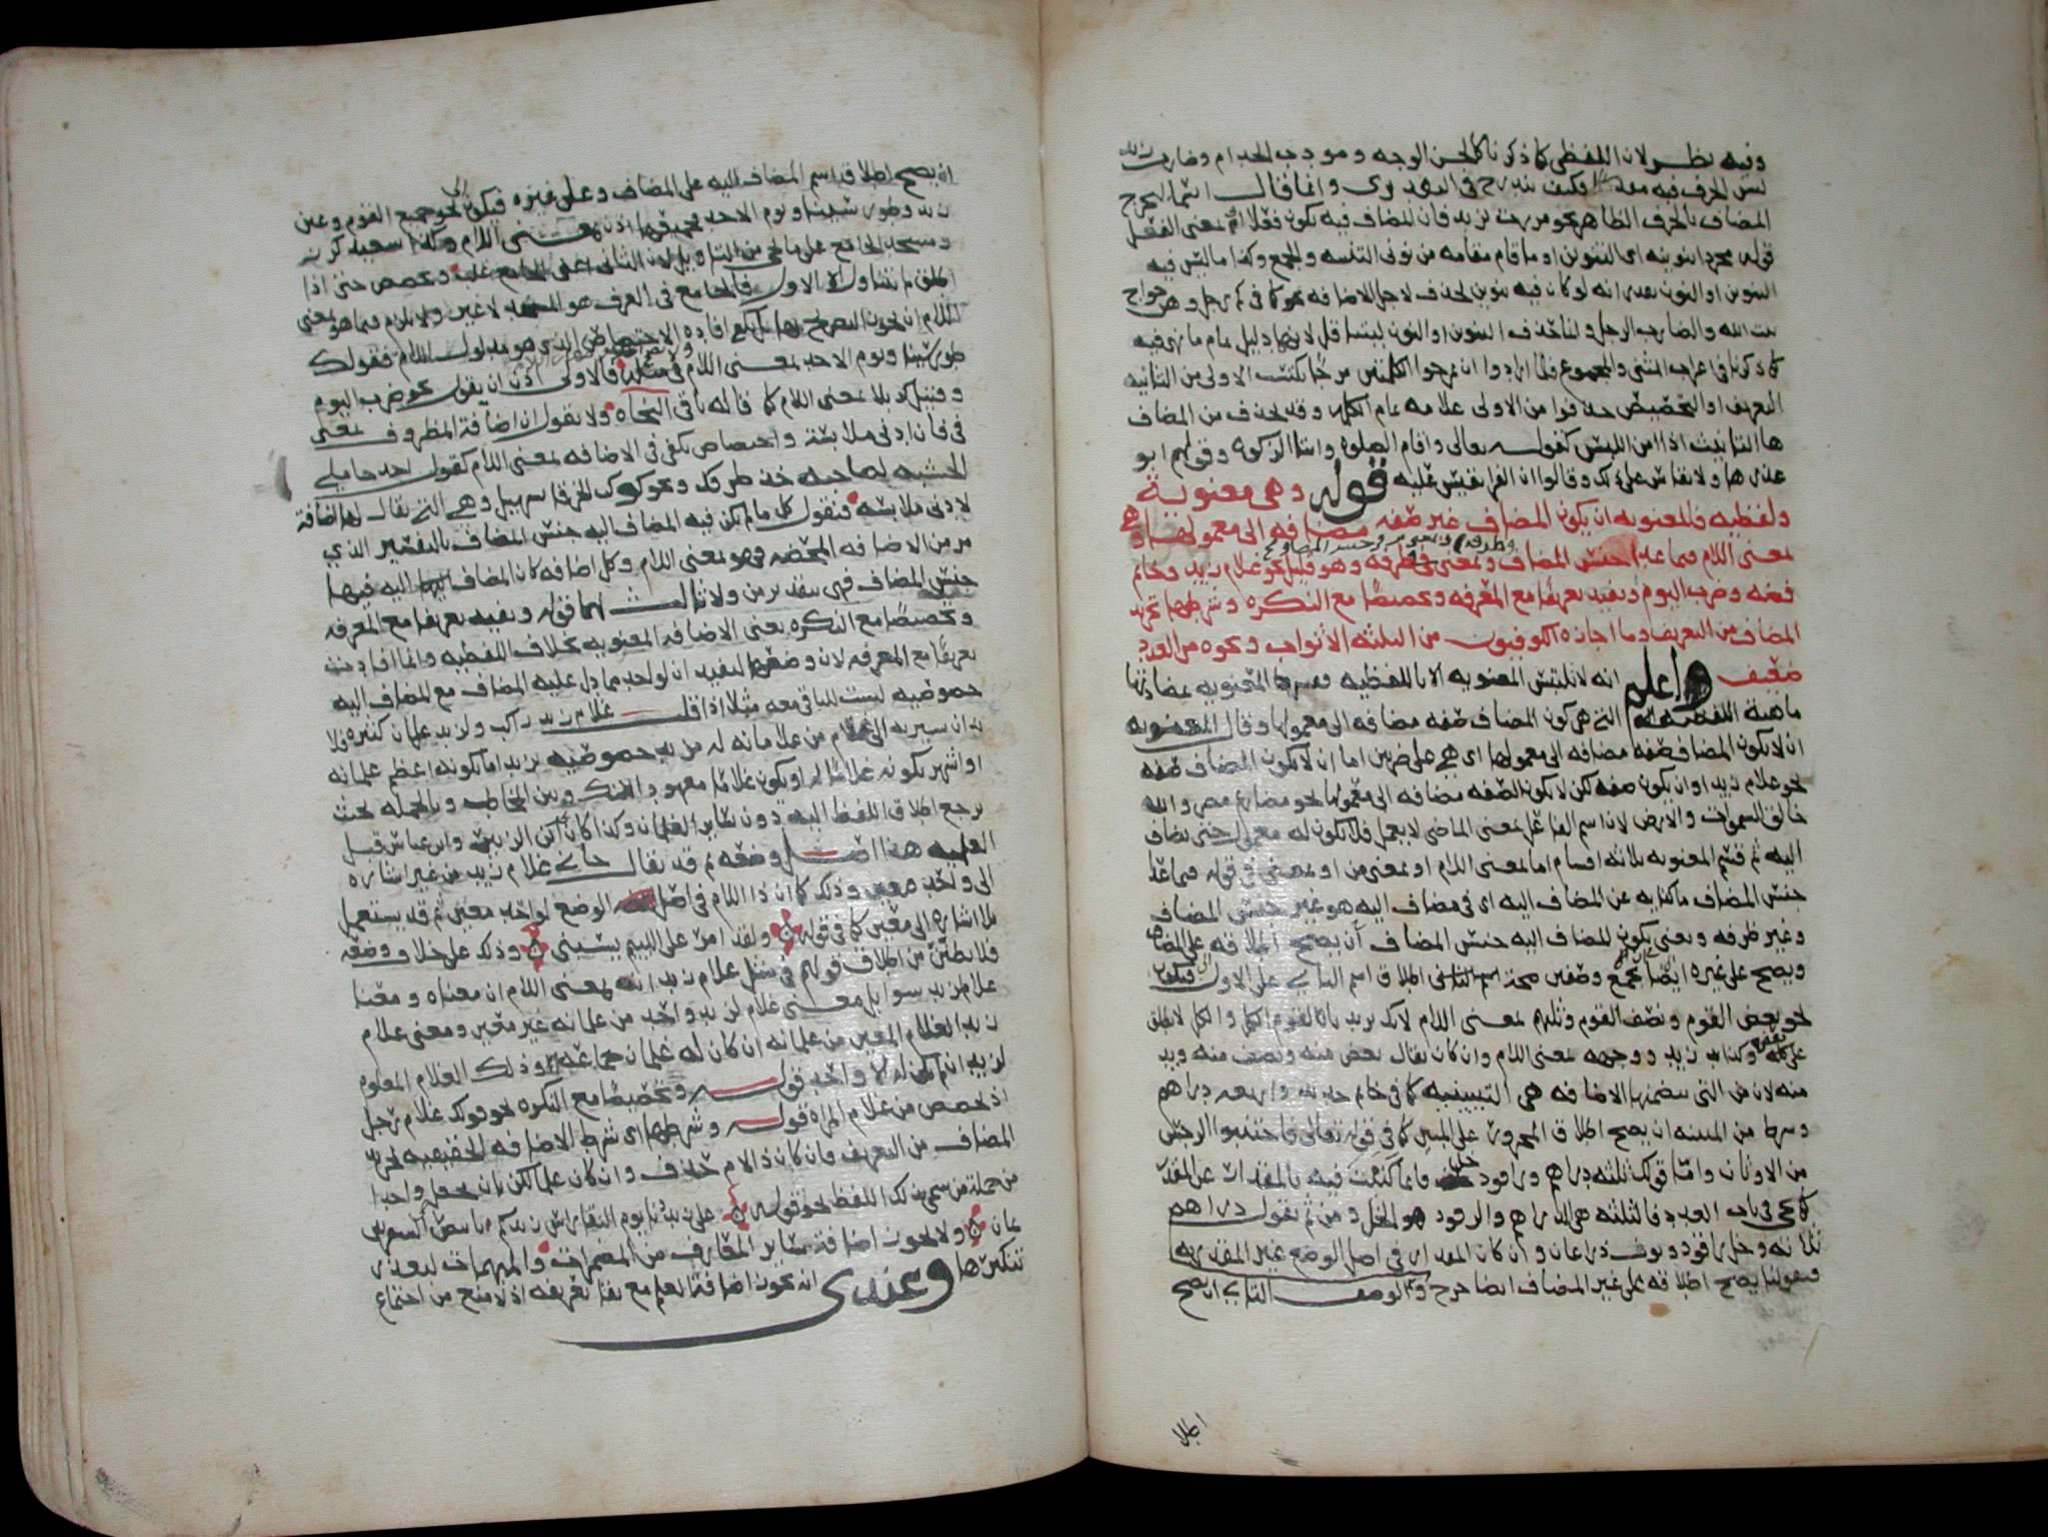 وفيه نظر لان اللفظى كما ذكرنا كالحسن الوجه ومودب الخدام وضارب زيد
ليس الحرف فيه مقدرا فكيف يندرج فى الحد وى وانما قال اسما ليخرج
المضاف بالحرف الظاهر نحو مررت بزيد فان المضاف فيه يكون فعلا او بمعنى الفعل
قوله مجردا تنوينه اى التنوين او ما قام مقامه من نونى التثنيه والجمع وكذا ما ليس فيه
التنوين او النون يقدر انه لو كان فيه تنوين لحذف لاجل الاضافه نحو كما فى كم رجل وهن حواج
بيت الله والضارب الرجل وانما حذف التنوين او النون لانها دليل تمام ما هى فيه
كما ذكرنا فى اعراب المثنى والمجموع فلما ارادوا ان يمزجوا الكلمتين مزجا تكتسب الاولى من الثانيه
التعريف او التخصيص حذفوا من الاولى علامه تمام الكلمه وقد يحذف من المضاف
ها التانيث اذا امن اللبس كقوله تعالى واقام الصلوه وايتا الزكوه وقولهم ابو
عذرها ولا يقاس على ذلك وقالوا ان الفرا يقيس عليه قوله وهى معنوية
ولفظيه فالمعنويه ان يكون المضاف غير صفه مضافه الى معمولها وهى
بمعنى اللام فيما عدا جنس المضاف وظرفه وبمعنى من فى جنس المضاف وبمعنى فى فى ظرفه وهو قليل نحو غلام زيد وخاتم
فضه وضرب اليوم وتفيد تعريفا مع المعرفه وتخصيصا مع النكره وشرطها تجريد
المضاف من التعريف وما اجازه الكوفيون من الثلثه الاثواب ونحوه من العدد
ضعيف واعلم انه لا تلتبس المعنويه الا باللفظيه المعنويه بمضادتها
ماهية اللفظيه التى هى كون المضاف صفه مضافه الى معمولها وقال المعنويه
ان لا يكون المضاف صفه مضافه الى معمولها اى هى على ضربين اما ان لا يكون المضاف صفه
نحو غلام زيد او ان يكون صفه لكن لا يكون الصفه مضافه الى معمولها نحو مضارع مصر والله
خالق السموات والارض لان اسم الفاعل بمعنى الماضى لا يعمل فلا يكون له معمول حتى يضاف
اليه ثم قسم المعنويه ثلاثه اقسام اما بمعنى اللام او بمعنى من او بمعنى فى قوله فيما عدا
جنس المضاف ما كنايه عن المضاف اليه اى فى مضاف اليه هو غير جنس المضاف
وغير ظرفه ونعنى بكون المضاف اليه جنس المضاف ان يصح اطلاقه على المضاف
ويصح على غيره ايضا اطلاق اسم الثانى على الاول فيكون
نحو بعض القوم ونصف القوم وثلثهم بمعنى اللام لانك تريد بالقوم الكل والكل لا يطلق
على بعضه وكذا يد زيد ووجهه بمعنى اللام وان كان يقال بعض منه ونصف منه ويد
منه لان من التى تتضمنها الاضافه هى التبيينيه كما فى خاتم حديد واربعه دراهم
وشرط من المبينه ان يصح اطلاق المجرور على المبين كما فى قوله تعالى فاجتنبوا الرجس
من الاوثان واما قولك ثلثه دراهم وراقود خل فانما كنيت فيه بالمقدار عن المقدر
كما يجى فى باب العدد فالثلثه هى الدراهم والراقود هو الخل ومن ثم تقول دراهم
ثلاثه وخل راقود وثوب ذراعان وان كان المقدار فى اصل الوضع غير المقدر به
وبقولنا يصح اطلاقه على غير المضاف ايضا خرج الوصف الثانى ان يصح
اطلا
ان يصح اطلاق اسم المضاف اليه على المضاف وعلى غيره فيكون نحو جميع القوم وعين
زيد وطور سينا ويوم الاحد اذن بمعنى اللام وكذا سعيد كرز
ومسجد الجامع على ما يجى من التاويل لان الثانى ويخصص حتى اذا
اطلق ما يتناول الا الاول فالجامع فى العرف هو المسجد لا غير ولا يلزم فيما هو بمعنى
اللام ان يجوز التصريح بها بل يكفى افاده الاختصاص الذى هو مدلول اللام فقولك
طور سينا ويوم الاحد بمعنى اللام فالاولى اذن ان يقول نحو ضرب اليوم
وقتيل كربلا بمعنى اللام كما قاله باقى النحاه ولا يقول ان اضافة المظروف بمعنى
فى فان ادنى ملابسة واختصاص يكفى فى الاضافه بمعنى اللام كقول احد حاملى
الخشبه لصاحبه خذ طرفك ونحو كوكب الخرقا سهيل وهى التى يقال لها اضافة
لادنى ملابسه فنقول كل ما لم يكن فيه المضاف اليه جنس المضاف بالتفسير الذى
مر من الاضافه المحضه فهو بمعنى اللام وكل اضافه كان المضاف اليه فيها
جنس المضاف فهى بتقدير من ولا ثالث لهما قوله وتفيد تعريفا مع المعرفه
وتخصيصا مع النكره يعنى الاضافه المعنويه بخلاف اللفظيه وانما افادت
تعريفا مع المعرفه لان وضعها لتفيد ان لواحد مما دل عليه المضاف مع المضاف اليه
خصوصيه ليست للباقى معه مثلا اذا قلت غلام زيد راكب ولزيد غلمان كثيره فلا
بد ان تشير به الى غلام من غلمانه له مزيد خصوصيه بزيد اما بكونه اعظم غلمانه
او اشهر بكونه غلاما له او يكون غلاما معهودا بينك وبين المخاطب وبالجمله بحيث
يرجع اطلاق اللفظ اليه دون ساير الغلمان وكذا كان ابن الزبير وابن عباس قبل
العلميه هذا اصل وضعه ثم قد يقال جانى غلام زيد من غير اشاره
الى واحد معين وذلك كما ان ذا اللام فى اصل الوضع لواحد معين ثم قد يستعمل
بلا اشاره الى معين كما فى قوله ولقد امر على اللئيم يسبنى وذلك على خلاف وضعه
فلا تظنن من اطلاق قولهم فى مثل غلام زيد انه بمعنى اللام ان معناه ومعنا
غلام لزيد سوا بل معنى غلام لزيد واحد من غلمانه غير معين ومعنى غلام
زيد الغلام المعين من غلمانه ان كان له غلمان جماعه وذلك الغلام المعلوم
لزيد ان لم يكن له الا واحد قوله وتخصيصا مع النكره نحو قولك غلام رجل
اذ تخصص من غلام امراه قوله وشرطها اى شرط الاضافه الحقيقيه تجريد
المضاف من التعريف فان كان ذا لام حذف وان كان علما نكر بان يجعل واحدا
من جملة من سمى بذلك اللفظ نحو قوله علا زيدنا يوم النقا راس زيدكم بابيض
يمان ولا يجوز اضافة ساير المعارف من المضمرات والمبهمات لتعذر
تنكيرها وعندى انه يجوز اضافة العلم مع بقا تعريفه اذ لا منع من اجتماع